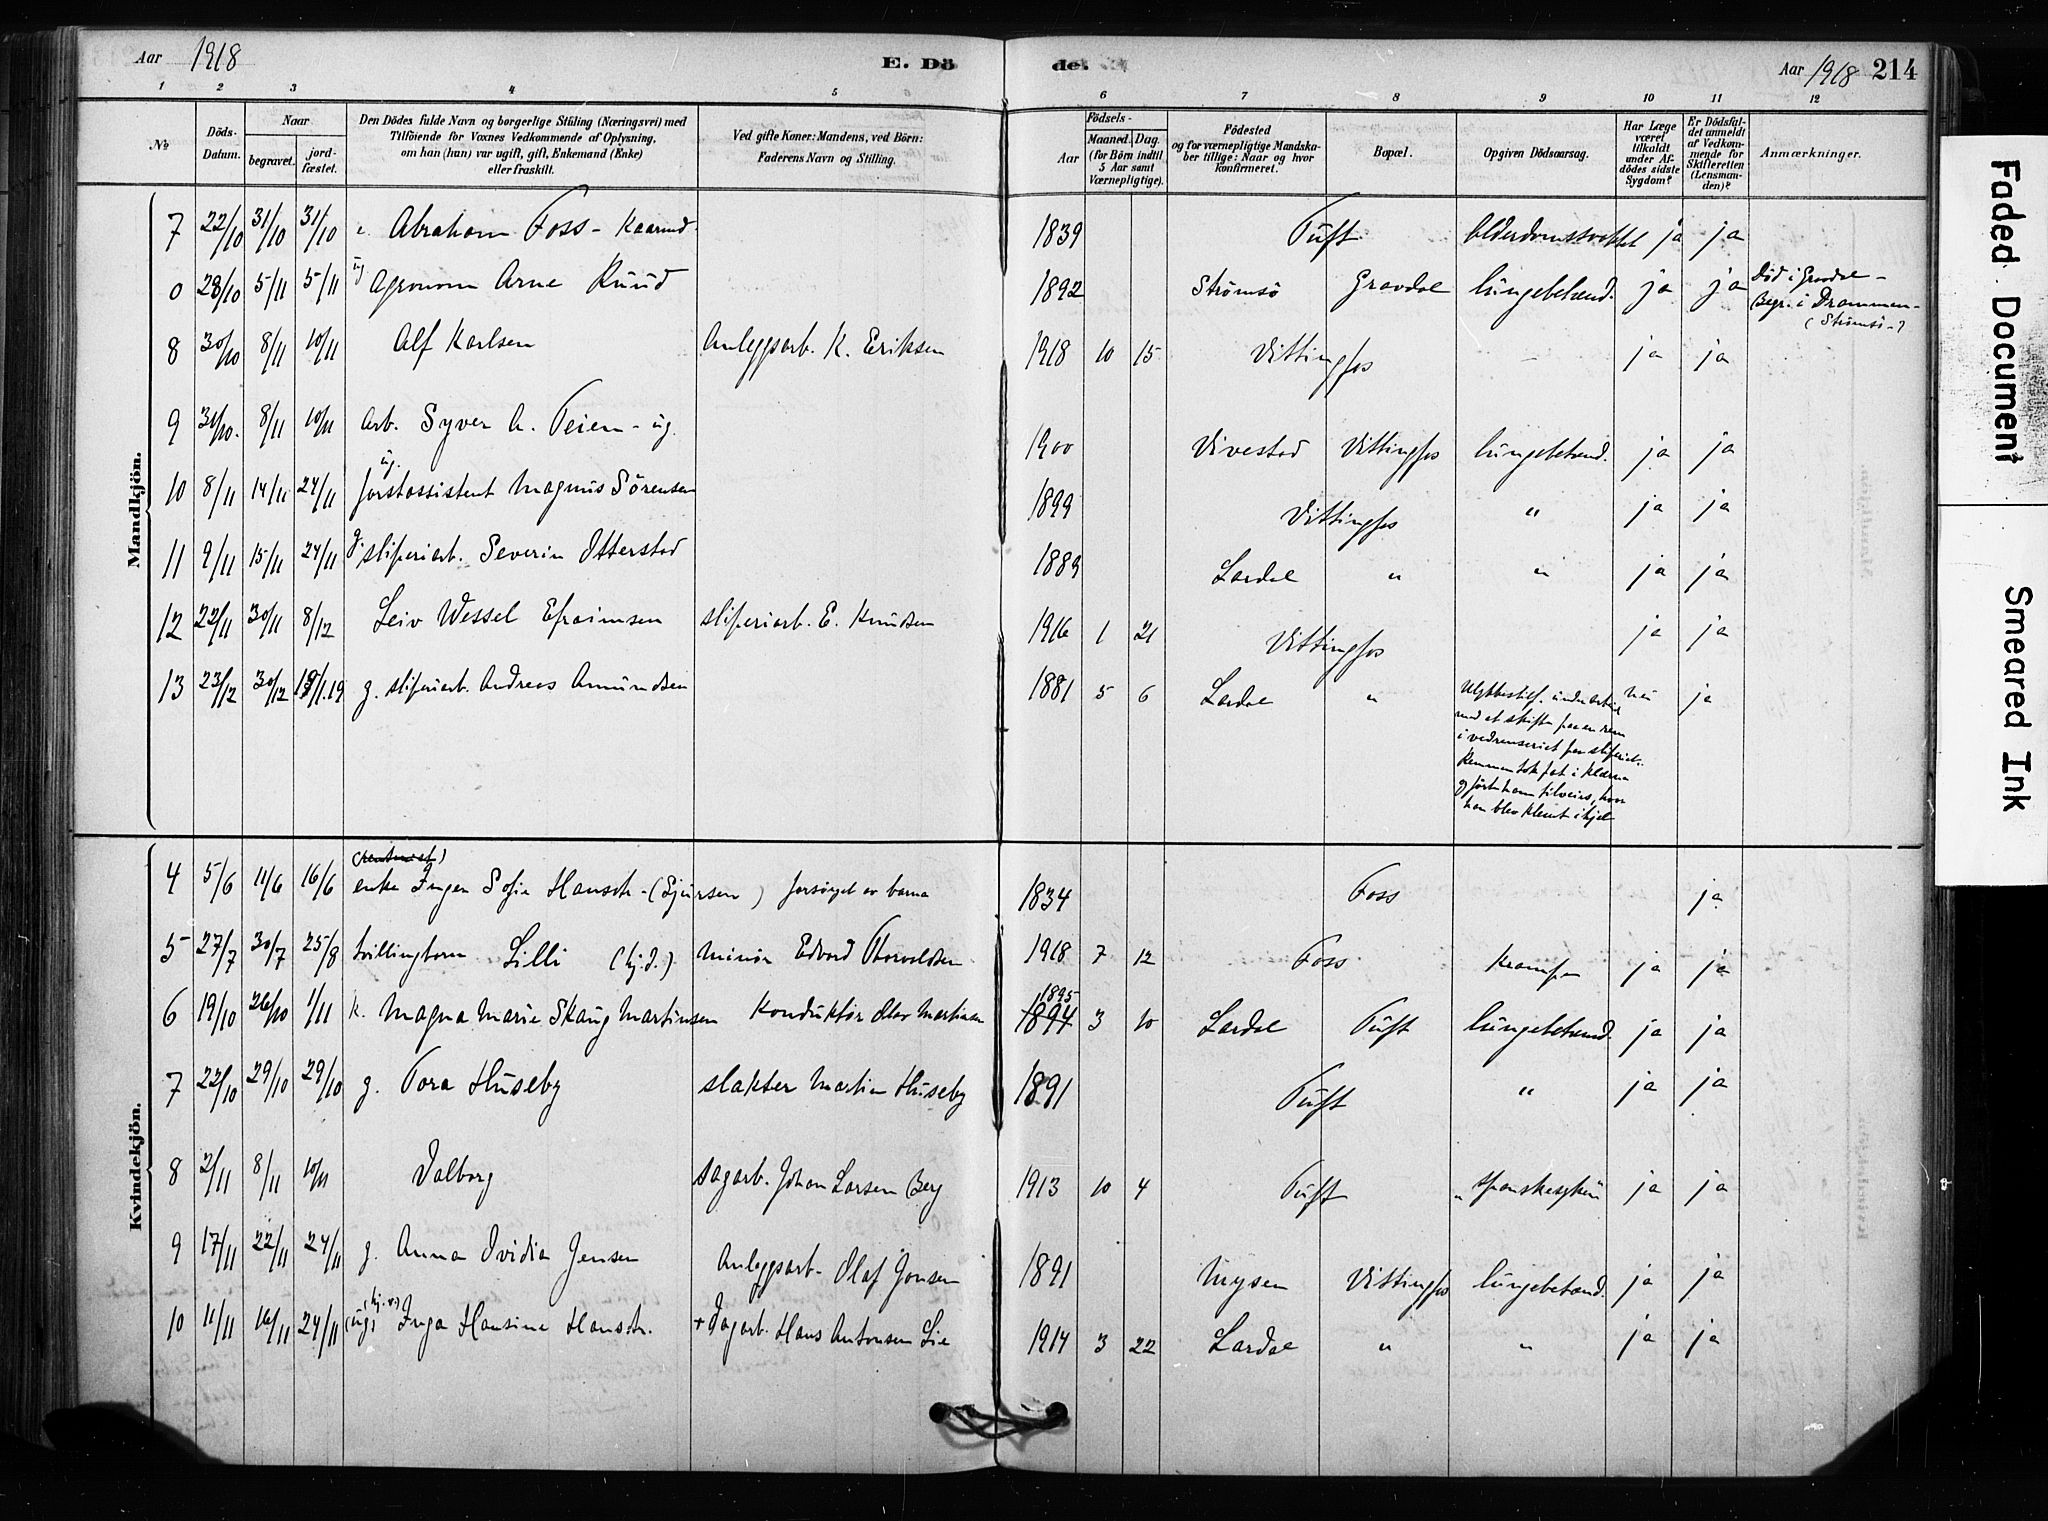 Aar 1918 E. Dö de. Aar 1918 214
1 2 3 4 5 6 7 8 9 10 11 12
No
Döds-Datum.
Naar
begravet.
jord-fæstet.
Den Dödes fulde Navn og borgerlige Stilling (Næringsvei) med
Tilföiende for Voxnes Vedkommende af Oplysning,
om han (hun) var ugift, gift, Enkemand (Enke)
eller fraskilt.
Ved gifte Koner: Mandens, ved Börn:
Faderens Navn og Stilling.
Födsels-
Aar
Maaned. Dag.
(for Börn indtil
5 Aar samt
Værnepligtige).
Födested
og for værnepligtige Mandska-
ber tillige: Naar og hvor
konfirmeret.
Bopæl.
Opgiven Dödsaarsag.
Har Læge
været
tilkaldt
under Af-
dödes sidste
Sygdom?
Er Dödsfal-
det anmeldt
af Vedkom-
mende for
Skifteretten
(Lensman-
den)?
Anmærkninger.
Mandkjön.
7 22/10 31/10 31/10 Abraham Foss - Kaarmd. 1839 Tuft Alderdomssvakhet ja ja
0 28/10 5/11 5/11 ug Agronom Arne Ruud 1892 Strømsø Gravdal lungebetænd. ja ja Død i Gravdal -
Begr. i Drammen -
(Strømsø-)
8 30/10 8/11 10/11 Alf Karlsen Anlegsarb. K. Eriksen 1918 10 15 Vittingfos - ja ja
9 8/11 10/11 Arb. Syver A. Teien - ug. 1900 Vivestad Vittingfos lungebetænd. ja ja
10 8/11 14/11 24/11 ug. forstassistent Magnus Sörensen 1899 Vittingfos " ja ja
11 9/11 15/11 24/11 g. sliperiarb. Severin Otterstad 1889 Lardal " " ja ja
12 22/11 30/11 8/12 Leiv Wessel Efraimsen sliperiarb. E. Knudsen 1916 1 21 Vittingfos ja ja
13 23/12 30/12 1.19 g. sliperiarb. Andreas Amundsen 1881 5 6 Lardal " Ulykkestilf. under arbeid nei ja
med at skifte paa en rem
i vedrenseriet paa sliperiet.
Remmen tok fat i klærne
og førte ham tilveirs, hvor
han blev klemt ihjel
Kvindekjön.
4 5/6 11/6 16/6 enke Inger Sofie Hansdtr - (Sjursen) forsörget av barna 1834 Foss ja
5 27/7 30/7 25/8 tvillingbarn Lilli (hj.d.) minör Edvard Thorvaldsen 1918 7 12 Foss Krampe ja ja
6 19/10 26/10 1/11 k. Magna Marie Skaug Martinsen Konduktör Olav Martinsen 1895
1894 3 10 Lardal Tuft lungebetænd. ja ja
7 22/10 29/10 29/10 g. Tora Huseby slakter Martin Huseby 1891 Tuft " ja ja
8 2/11 8/11 10/11 Valborg sagarb. Johan Larsen Berg 1913 10 4 Tuft "spanskesyken ja ja
9 17/11 22/11 24/11 g. Anna Ovidia Jensen Anlegsarb. Olaf Jensen 1891 Mysen Vittingfos lungebetænd. ja ja
10 11/11 16/11 24/11 (ug) Inga Hansine Hansdtr. + Dagarb. Hans Antonsen Lie 1914 3 22 Lardal " " ja ja
Faded Document
Smeared Ink